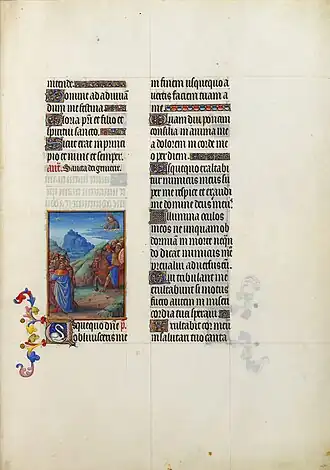 intende.
Domine ad adiuvan
dum me festina
Gloria pri et filio et
spiritui sancto.
Sicut erat in princi
pio et nunc et semper.
ant.
Usquequo dne
oblivisceris me
in finem usquequo a
vertis faciem tuam a
me
Quam diu ponam
consilia in anima mea
dolorem in corde meo
per diem.
Usquequo exaltabi
tur inimicus meus super
me respice et exaudi
me domine deus meus
Illumina oculos
meos ne unquam ob
dormiam in morte nequan
do dicat inimicus meus
prevalui adversus eum
Qui tribulant me
exultabunt si motus
fuero autem in miseri
cordia tua speravi
Exultabit cor meum
in salutari tuo canta